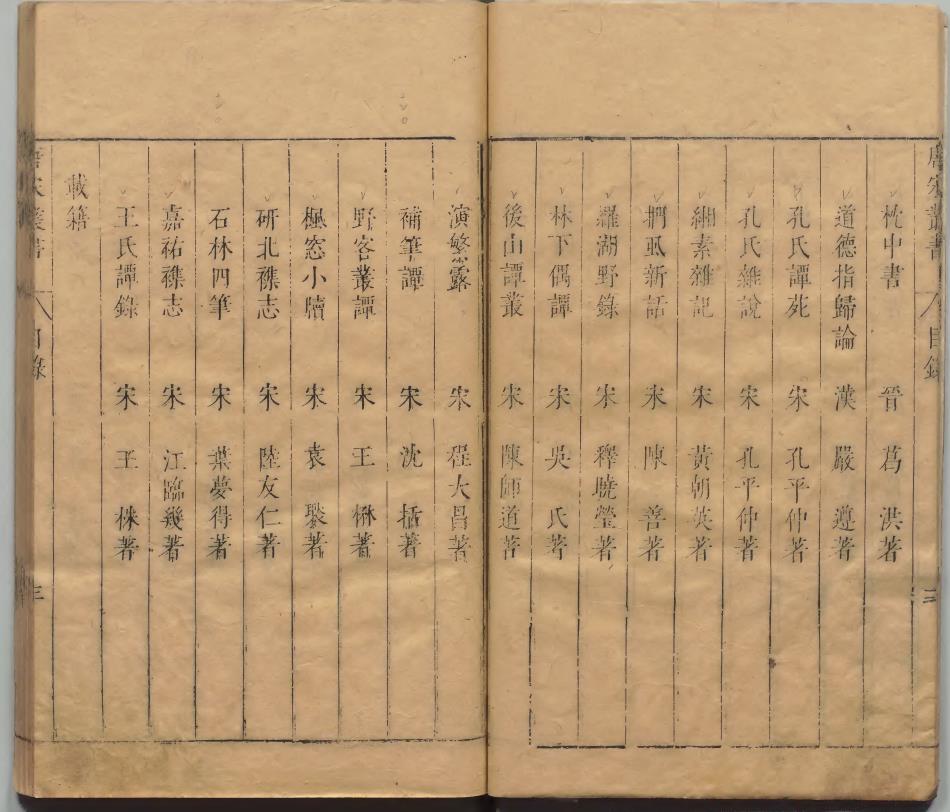 唐宋叢書 目錄 三
枕中書 晉 葛洪著
道德指歸論 漢 嚴遵著
孔氏譚苑 宋 孔平仲著
孔氏雜說 宋 孔平仲著
緗素雜記 宋 黃朝英著
捫虱新話 宋 陳善著
羅湖野錄 宋 釋曉瑩著
林下偶譚 宋 吳氏著
後山譚叢 宋 陳師道著
演繁露 宋 程大昌著
補筆譚 宋 沈括著
野客叢譚 宋 王楙著
楓窓小牘 宋 袁褧著
研北襍志 宋 陸友仁著
石林四筆 宋 葉夢得著
嘉祐襍志 宋 江臨幾著
王氏譚錄 宋 王株著
載籍
唐宋叢書 目錄 三